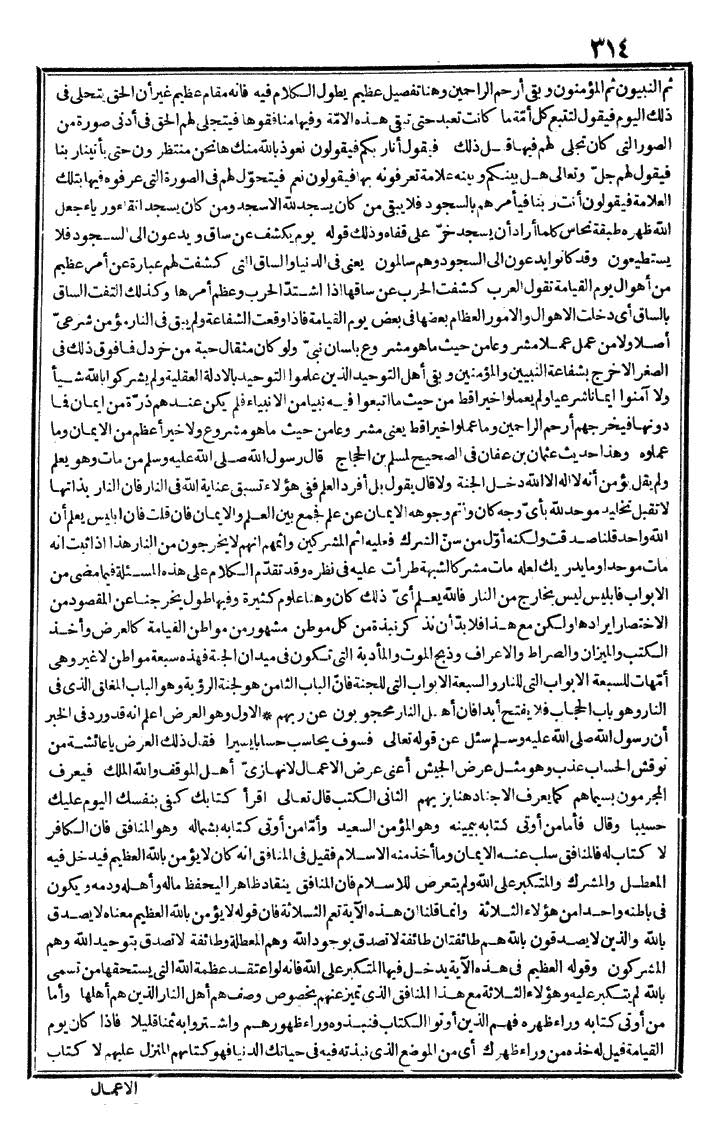 ٣١٤
ثم النبيون ثم المؤمنون وبقى أرحم الراحمين وهنا تفصيل عظيم يطول الكلام فيه فانه مقام عظيم غير أن الحق يتجلى فى
ذلك اليوم فيقول لتتبع كل أمّة ما كانت تعبد حتى تبقى هذه الامّة وفيها منافقوها فيتجلى لهم الحق فى أدنى صورة من
الصور التى كان تجلى لهم فيها قبل ذلك فيقول أنا ربكم فيقولون نعوذ بالله منك ها نحن منتظرون حتى يأتينا ربنا
فيقول لهم جلّ وتعالى هل بينكم وبينه علامة تعرفونه بها فيقولون نعم فيتحوّل لهم فى الصورة التى عرفوه فيها بتلك
العلامة فيقولون أنت ربنا فيأمرهم بالسجود فلا يبقى من كان يسجد لله الاسجد ومن كان يسجد اتقاء ورياء جعل
الله ظهره طبقة نحاس كلما أراد أن يسجد خرّ على قفاه وذلك قوله يوم يكشف عن ساق ويدعون الى السجود فلا
يستطيعون وقد كانوا يدعون الى السجود وهم سالمون يعنى فى الدنيا والساق التى كشفت لهم عبارة عن أمر عظيم
من أهوال يوم القيامة تقول العرب كشفت الحرب عن ساقها اذا اشتدّ الحرب وعظم أمرها وكذلك التفت الساق
بالساق أى دخلت الاهوال والامور العظام بعضها فى بعض يوم القيامة فاذا وقعت الشفاعة ولم يبق فى النار مؤمن شرعىّ
أصلا ولا من عمل عملا مشروعا من حيث ما هو مشروع بلسان نبىّ ولو كان مثقال حبة من خردل فما فوق ذلك فى
الصغر الاخرج بشفاعة النبيين والمؤمنين وبقى أهل التوحيد الذين علموا التوحيد بالادلة العقلية ولم يشركوا بالله شيأ
ولا آمنوا ايمانا شرعيا ولم يعملوا خيرا قط من حيث ما اتبعوا فيه نبيا من الانبياء فلم يكن عندهم ذرّة من ايمان فما
دونها فيخرجهم أرحم الراحمين وما عملوا خيرا قط يعنى مشروعا من حيث ما هو مشروع ولا خير أعظم من الايمان وما
عملوه وهذا حديث عثمان بن عفان فى الصحيح لمسلم بن الحجاج قال رسول الله صلى الله عليه وسلم من مات وهو يعلم
ولم يقل يؤمن أنه لا اله الا الله دخل الجنة ولا قال يقول بل أفرد العلم ففى هؤلاء تسبق عناية الله فى النار فان النار بذاتها
لا تقبل تخليد موحد لله بأىّ وجه كان وأتم وجوهه الايمان عن علم فجمع بين العلم والايمان فان قلت فان ابليس يعلم أن
الله واحد قلنا صدقت ولكنه أوّل من سنّ الشرك فعليه اثم المشركين واثمهم انهم لا يخرجون من النار هذا اذا ثبت انه
مات موحدا وما يدريك لعله مات مشركا لشبهة طرأت عليه فى نظره وقد تقدّم الكلام على هذه المسئلة فيما مضى من
الابواب فابليس ليس بخارج من النار فالله يعلم أىّ ذلك كان وهنا علوم كثيرة وفيها طول يخرجنا عن المقصود من
الاختصار ايرادها ولكن مع هذا فلا بدّ أن نذكر نبذة من كل موطن مشهور من مواطن القيامة كالعرض وأخذ
الكتب والميزان والصراط والاعراف وذبح الموت والمأدبة التى تكون فى ميدان الجنة فهذه سبعة مواطن لا غير وهى
أمّهات للسبعة الابواب التى للنار والسبعة الابواب التى للجنة فانّ الباب الثامن هو لجنة الرؤية وهو الباب المغلق الذى فى
النار وهو باب الحجاب فلا يفتح أبدا فان أهل النار محجوبون عن ربهم * الاول وهو العرض اعلم انه قد ورد فى الخبر
أن رسول الله صلى الله عليه وسلم سئل عن قوله تعالى فسوف يحاسب حسابا يسيرا فقال ذلك العرض يا عائشة من
نوقش الحساب عذب وهو مثل عرض الجيش أعنى عرض الاعمال لانها زىّ أهل الموقف والله الملك فيعرف
المجرمون بسيماهم كما يعرف الاجناد هنا بزيهم الثانى الكتب قال تعالى اقرأ كتابك كفى بنفسك اليوم عليك
حسيبا وقال فأما من أوتى كتابه بيمينه وهو المؤمن السعيد وأمّا من أوتى كتابه بشماله وهو المنافق فان الكافر
لا كتاب له فالمنافق سلب عنه الايمان وما أخذ منه الاسلام فقيل فى المنافق انه كان لا يؤمن بالله العظيم فيدخل فيه
المعطل والمشرك والمتكبر على الله ولم يتعرض للاسلام فان المنافق ينقاد ظاهرا ليحفظ ماله وأهله ودمه ويكون
فى باطنه واحدا من هؤلاء الثلاثة وانما قلنا ان هذه الآية تعم الثلاثة فان قوله لا يؤمن بالله العظيم معناه لا يصدق
بالله والذين لا يصدقون بالله هم طائفتان طائفة لا تصدق بوجود الله وهم المعطلة وطائفة لا تصدق بتوحيد الله وهم
المشركون وقوله العظيم فى هذه الآية يدخل فيها المتكبر على الله فانه لو اعتقد عظمة الله التى يستحقها من تسمى
بالله لم يتكبر عليه وهؤلاء الثلاثة مع هذا المنافق الذى تميز عنهم بخصوص وصف هم أهل النار الذين هم أهلها وأما
من أوتى كتابه وراء ظهره فهم الذين أوتوا الكتاب فنبذوه وراء ظهورهم واشتروا به ثمنا قليلا فاذا كان يوم
القيامة قيل له خذه من وراء ظهرك أى من الموضع الذى نبذته فيه فى حياتك الدنيا فهو كتابهم المنزل عليهم لا كتاب
الاعمال